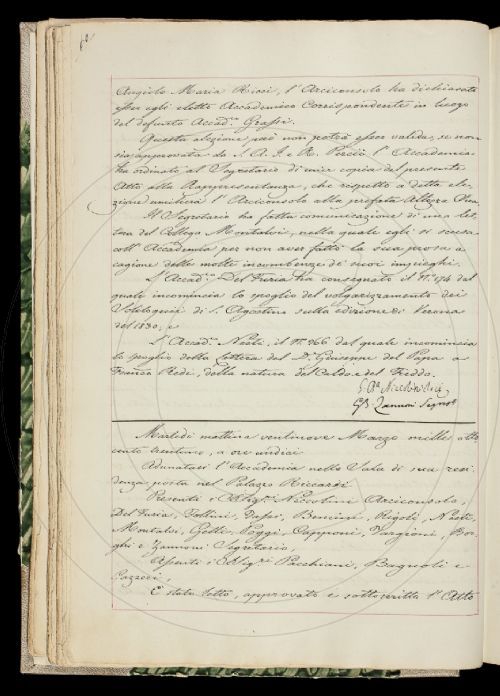 Angiolo Maria Ricci, l'Arciconsolo ha dichiarato
esser egli eletto Accademico Corrispondente in luogo
del defunto Accad.co Grassi.
Questa elezione, però non potrà esser valida, se non
sia approvata da S. A. I. e R. Perciò l'Accademia
ha ordinato al Segretario di unir copia del presente
Atto alla Rappresentanza, che rispetto a detta ele-
zione umilierà l'Arciconsolo alla prefata Altezza Sua.
Il Segretario ha fatta comunicazione di una let-
tera del Collega Montalvi, nella quale egli si scusa
coll'Accademia per non aver fatto la sua prosa a
cagione delle molte incumbenze de' suoi impieghi.
L'Accad.co Del Furia ha consegnato il N.o 174 dal
quale incomincia lo spoglio del volgarizzamento dei
Soliloqui di S. Agostino sulla edizione di Verona
del 1830; e
L'Accad.co Nesti, il N.o 366 dal quale incomincia
lo spoglio della Lettera del D.r Giuseppe del Papa a
Francesco Redi, della natura del Caldo e del Freddo.
G. B. Zannoni Segret.o
Martedì mattina ventinove Marzo mille otto
cento trentuno, a ore undici
Adunatasi l'Accademia nella Sala di sua resi
denza posta nel Palazzo Riccardi
Presenti i Sigg.ri Niccolini Arciconsolo,
Del Furia, Follini, Bencini, Rigoli, Nesti,
Montalvi, Gelli, Poggi, Capponi, Targioni, Bor-
ghi e Zannoni Segretario,
Assenti i Sigg.ri Pacchiani, Bagnoli e
Gazzeri,
È stato letto, approvato e sottoscritto l'Atto